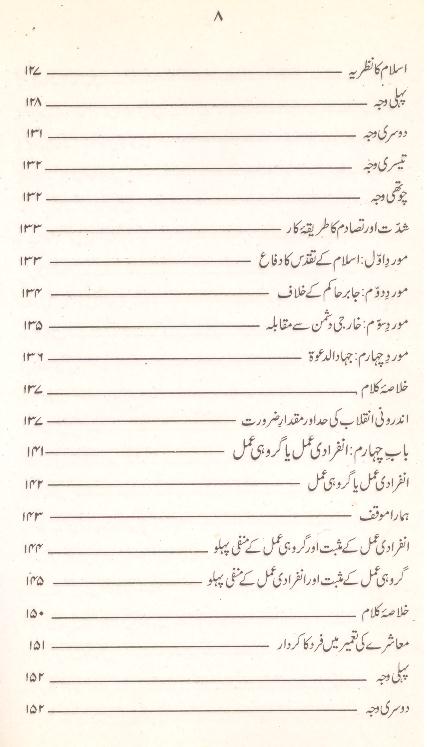 ۸
اسلام کا نظریہ ۱۲۷
پہلی وجہ ۱۲۸
دوسری وجہ ۱۳۱
تیسری وجہ ۱۳۲
چوتھی وجہ ۱۳۲
شدّت اور تصادم کا طریقۂ کار ۱۳۳
موردِ اوّل: اسلام کے تقدّس کا دفاع ۱۳۳
موردِ دوّم: جابر حاکم کے خلاف ۱۳۴
موردِ سوّم: خارجی دشمن سے مقابلہ ۱۳۵
موردِ چہارم: جہاد الدعوۃ ۱۳۶
خلاصۂ کلام ۱۳۷
اندرونی انقلاب کی حد اور مقدارِ ضرورت ۱۳۷
بابِ چہارم: انفرادی عمل یا گروہی عمل ۱۴۱
انفرادی عمل یا گروہی عمل ۱۴۲
ہمارا موقف ۱۴۳
انفرادی عمل کے مثبت اور گروہی عمل کے منفی پہلو ۱۴۴
گروہی عمل کے مثبت اور انفرادی عمل کے منفی پہلو ۱۴۵
خلاصۂ کلام ۱۵۰
معاشرے کی تعمیر میں فرد کا کردار ۱۵۱
پہلی وجہ ۱۵۲
دوسری وجہ ۱۵۲